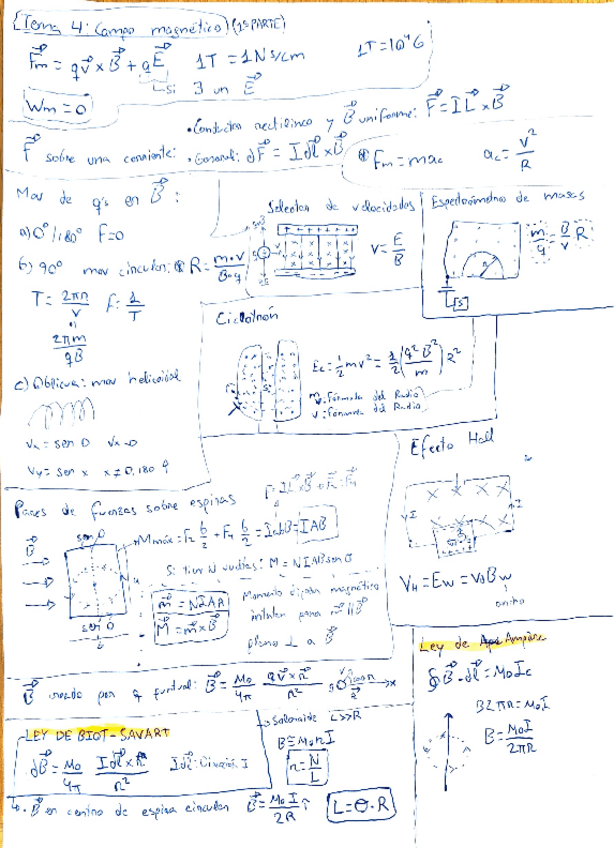 Tema 4: Campo magnético (1ª PARTE)
F⃗m = qv⃗ x B⃗ + qE⃗ 1T = 1Ns/cm 1T = 10⁴G
Si ∃ un E⃗
Wm = 0
• Conductor rectilíneo y B⃗ uniforme: F⃗ = IL⃗ x B⃗
F⃗ sobre una corriente: • General: dF⃗ = Idl⃗ x B⃗
Fm = mac ac = v²/R
Mov de q's en B⃗:
a) 0°/180° F=0
b) 90° mov circular: R = m·v/B·q
T = 2πr/v f = 1/T
2πm/qB
c) Oblicua: mov helicoidal
Selector de velocidades
V = E/B
Espectrómetro de masas
m/q = B/v R
Ciclotrón
Ec = 1/2 mv² = 1/2 (q²B²/m) R²
m: Fórmula del Radio
v: Fórmula del Radio
Efecto Hall
VH = Ew = vdBw
Pares de fuerzas sobre espiras
B⃗
Mmáx = F2 b/2 + F4 b/2 = IabB = IAB
Si tien N vueltas: M = NIAB senθ
M⃗ = m⃗ x B⃗
Momento dipolar magnético
plano ⊥ a B⃗
B⃗ creado por q puntual: B⃗ = Mo/4π qv⃗ x r⃗/r²
LEY DE BIOT-SAVART
dB⃗ = Mo/4π Idl⃗ x r⃗/r² Idl⃗: Dirección I
Solenoide L>>R
B ≅ MonI
n = N/L
• B⃗ en centro de espira circular B⃗ = MoI/2R L = θ·R
Ley de Ampère
∮B⃗·dl⃗ = MoIc
B2πR = MoI
B = MoI/2πR